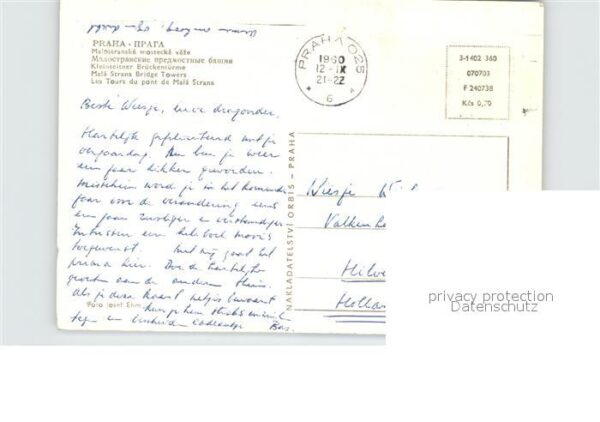 PRAHA - ПРАГА
Malostranské mostecké věže
Малостранские предмостные башни
Kleinseitner Brückentürme
Malá Strana Bridge Towers
Les Tours du pont de Malá Strana
PRAHA 025
1960
12.-IX
21-22
6
3-1402 360
070703
F 240738
Kčs 0,70
Beste Wiesje,
Hartelijk gefeliciteerd met je
verjaardag. Nu ben je weer
een jaar dikker geworden.
Misschien word je in het komende
jaar voor de verandering eens
een jaar rustiger en verstandiger
Intussen een heleboel moois
toegewenst. Met mij gaat het
prima hier. Doe de hartelijke
groeten aan de anderen thuis.
Als je deze kaart netjes bewaart
Foto Josef Ehm
Bas.
NAKLADATELSTVÍ ORBIS - PRAHA
Wiesje
Hilve
Holla
privacy protection
Datenschutz